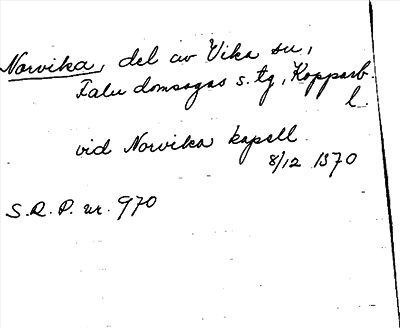 Norvika, del av Vika sn,
Falu domsagas s. tg, Kopparb.
l.
vid Norvika kapell
8/12 1370
S.R.P. nr. 970